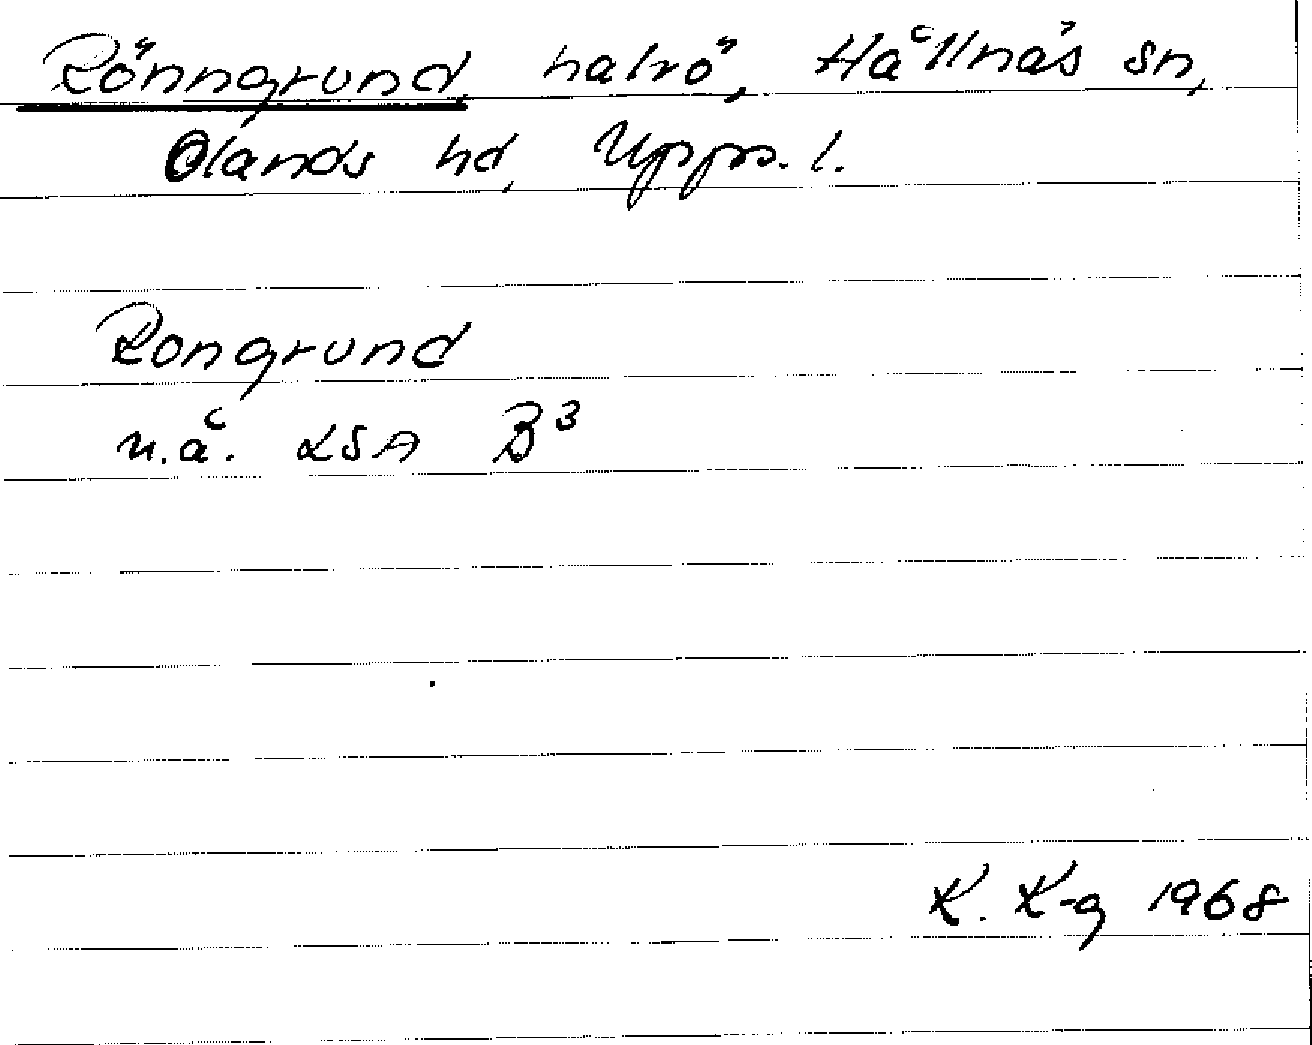 Rönngrund, halvö, Hållnäs sn,
Olands hd, Upps. l.
Rongrund
n.å. LSA B3
K. K-g 1968